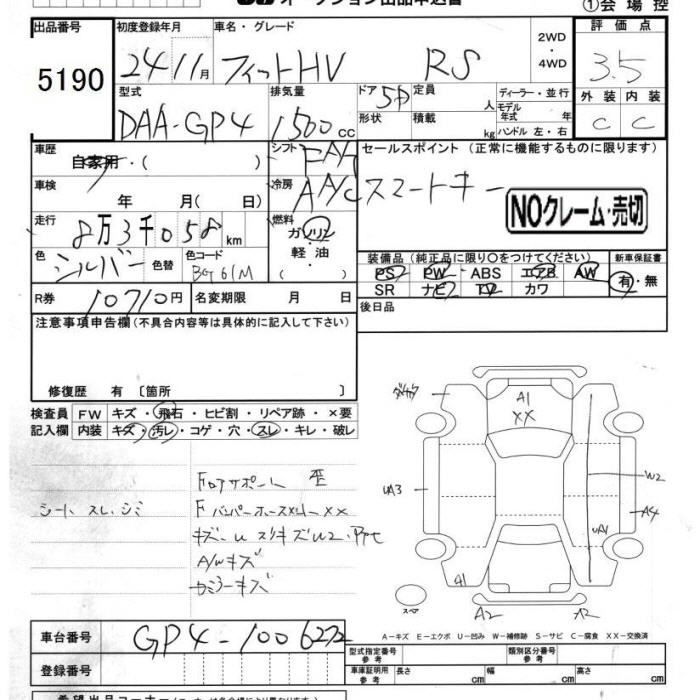 オークション出品申込書
①会場控
出品番号 5190
初度登録年月 24 11月
車名・グレード フィットHV RS
2WD・4WD
評価点 3.5
外装 C 内装 C
型式 DAA-GP4
排気量 1500cc
ドア 5D
形状
定員 人
積載 kg
ディーラー・並行
モデル年式 年式
ハンドル 左・右
車歴 自家用・( )
シフト FAT
冷房 A/C
セールスポイント (正常に機能するものに限ります)
スマートキー
NOクレーム・売切
車検 年 月( 日)
走行 8万3千058km
燃料 ガソリン・軽油・
色 シルバー 色替 色コード BG61M
装備品 (純正品に限り○をつけてください)
PS PW ABS エアB AW
SR ナビ TV カワ
新車保証書 有・無
R券 10710円 名変期限 月 日
後日品
注意事項申告欄 (不具合内容等は具体的に記入して下さい)
修復歴 有 〔箇所 〕
検査員記入欄
FW キズ・飛石・ヒビ割・リペア跡・×要
内装 キズ・汚レ・コゲ・穴・スレ・キレ・破レ
シート スレ、シミ
Fロアサポート 歪
F バンパーホースメント XX
A/Wキズ
カミラーキズ
A1
XX
UA3
W2
A4
UA1
A1
A2
A2
スペア
A-キズ E-エクボ U-凹み W-補修跡 S-サビ C-腐食 XX-交換済
車台番号 GP4-1006272
登録番号
型式指定番号 参考
類別区分番号 参考
車庫証明用 参考 長さ cm 幅 cm 高さ cm
希望出品コーナー